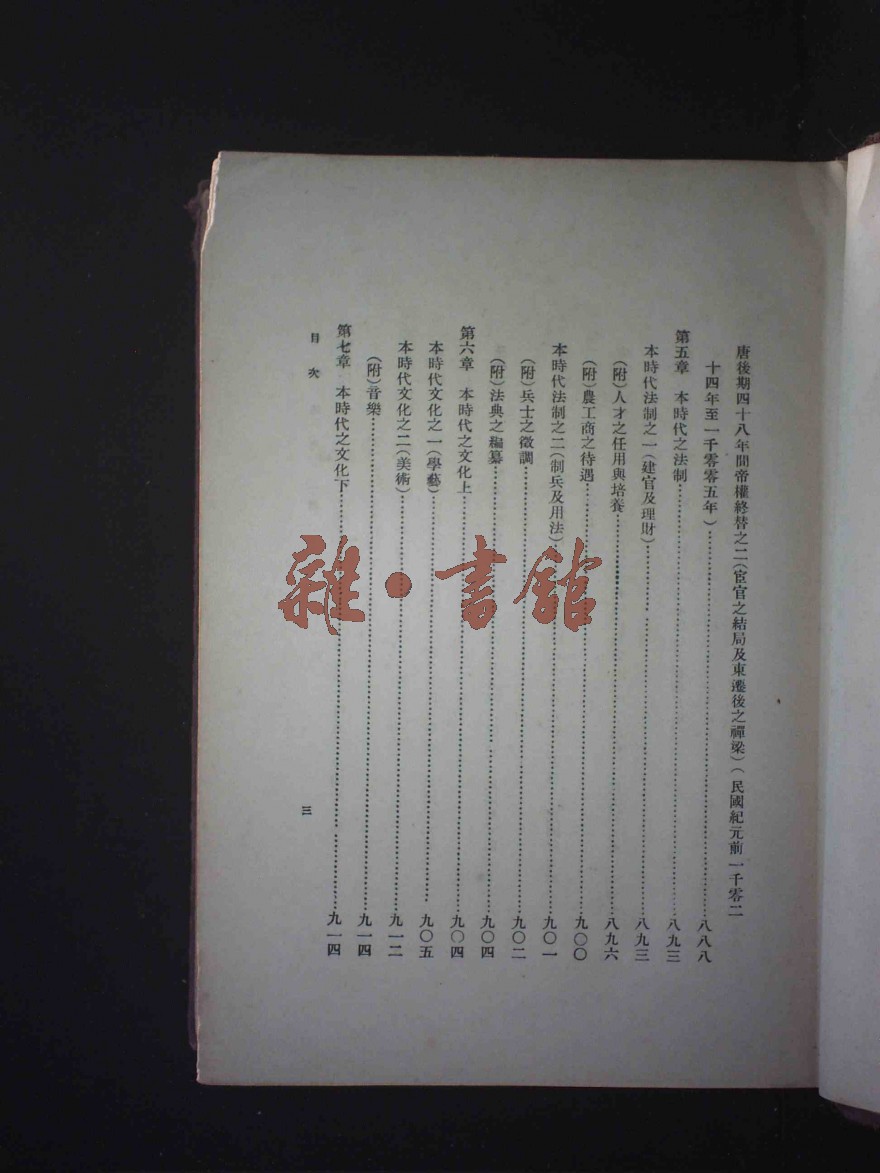 唐後期四十八年間帝權終替之二（宦官之結局及東遷後之禪梁）（民國紀元前一千零二
十四年至一千零零五年）……八八八
第五章　本時代之法制……八九三
本時代法制之一（建官及理財）……八九三
（附）人才之任用與培養……八九六
（附）農工商之待遇……九〇〇
本時代法制之二（制兵及用法）……九〇一
（附）兵士之徵調……九〇二
（附）法典之編纂……九〇四
第六章　本時代之文化上……九〇四
本時代文化之一（學藝）……九〇五
本時代文化之二（美術）……九一二
（附）音樂……九一四
第七章　本時代之文化下……九一四
目次
三
雜·書館